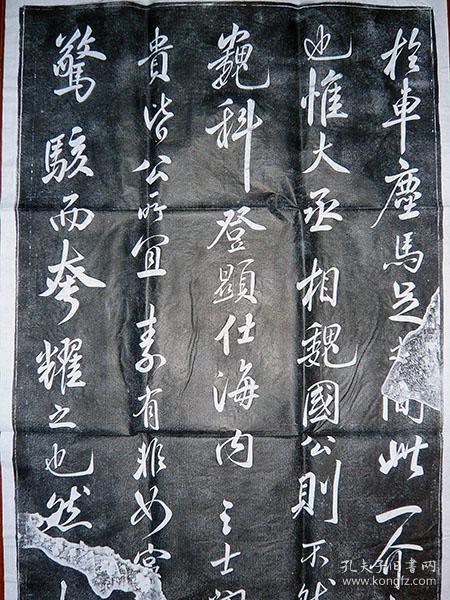 於車塵馬足間此一介
也惟大丞相魏國公則不然
巍科登顯仕海内之士聞
貴皆公所宜素有非如窮
驚駭而夸耀之也然
孔夫子旧书网
www.kongfz.com